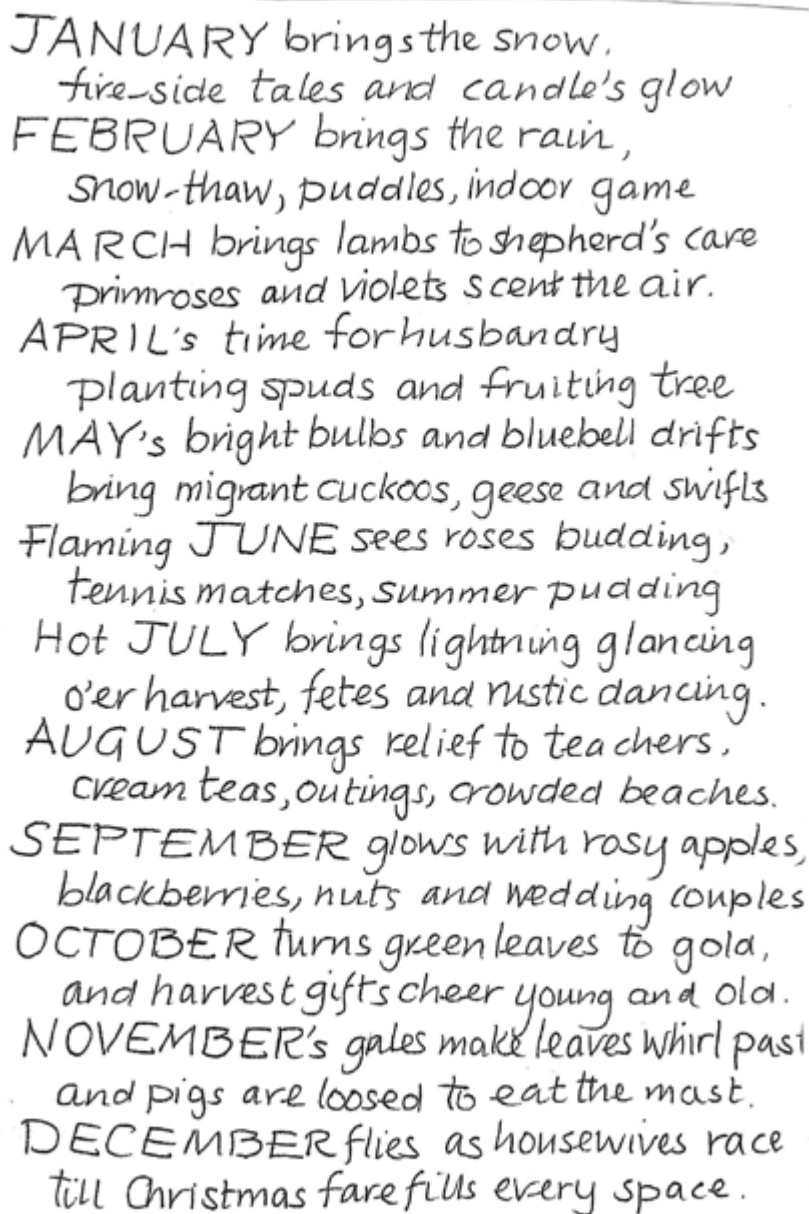 JANUARY brings the snow,
fire-side tales and candle's glow
FEBRUARY brings the rain,
Snow-thaw, puddles, indoor game
MARCH brings lambs to shepherd's care
primroses and violets scent the air.
APRIL's time for husbandry
planting spuds and fruiting tree
MAY's bright bulbs and bluebell drifts
bring migrant cuckoos, geese and swifts
Flaming JUNE sees roses budding,
tennis matches, summer pudding
Hot JULY brings lightning glancing
o'er harvest, fetes and rustic dancing.
AUGUST brings relief to teachers,
cream teas, outings, crowded beaches.
SEPTEMBER glows with rosy apples,
blackberries, nuts and wedding couples
OCTOBER turns green leaves to gold,
and harvest gifts cheer young and old.
NOVEMBER's gales make leaves whirl past
and pigs are loosed to eat the mast.
DECEMBER flies as housewives race
till Christmas fare fills every space.